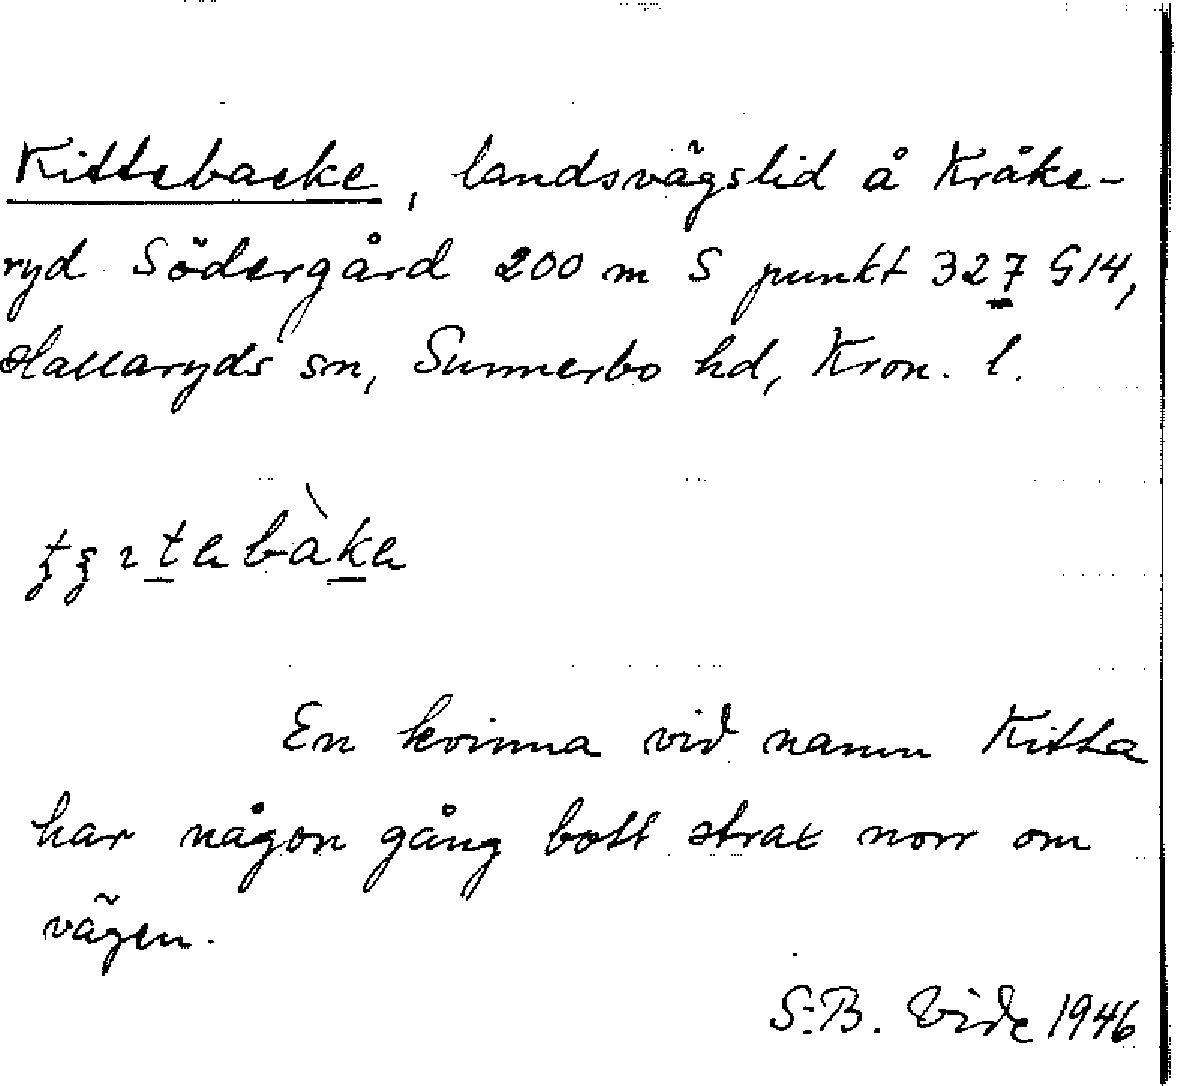 Kittebacke, landsvägslid å Kråke-
ryd Södergård 200 m S punkt 327 G14,
Hallaryds sn, Sunnerbo hd, Kron. l.
En kvinna vid namn Kitta
har någon gång bott strax norr om
vägen.
S-B. Vide 1946